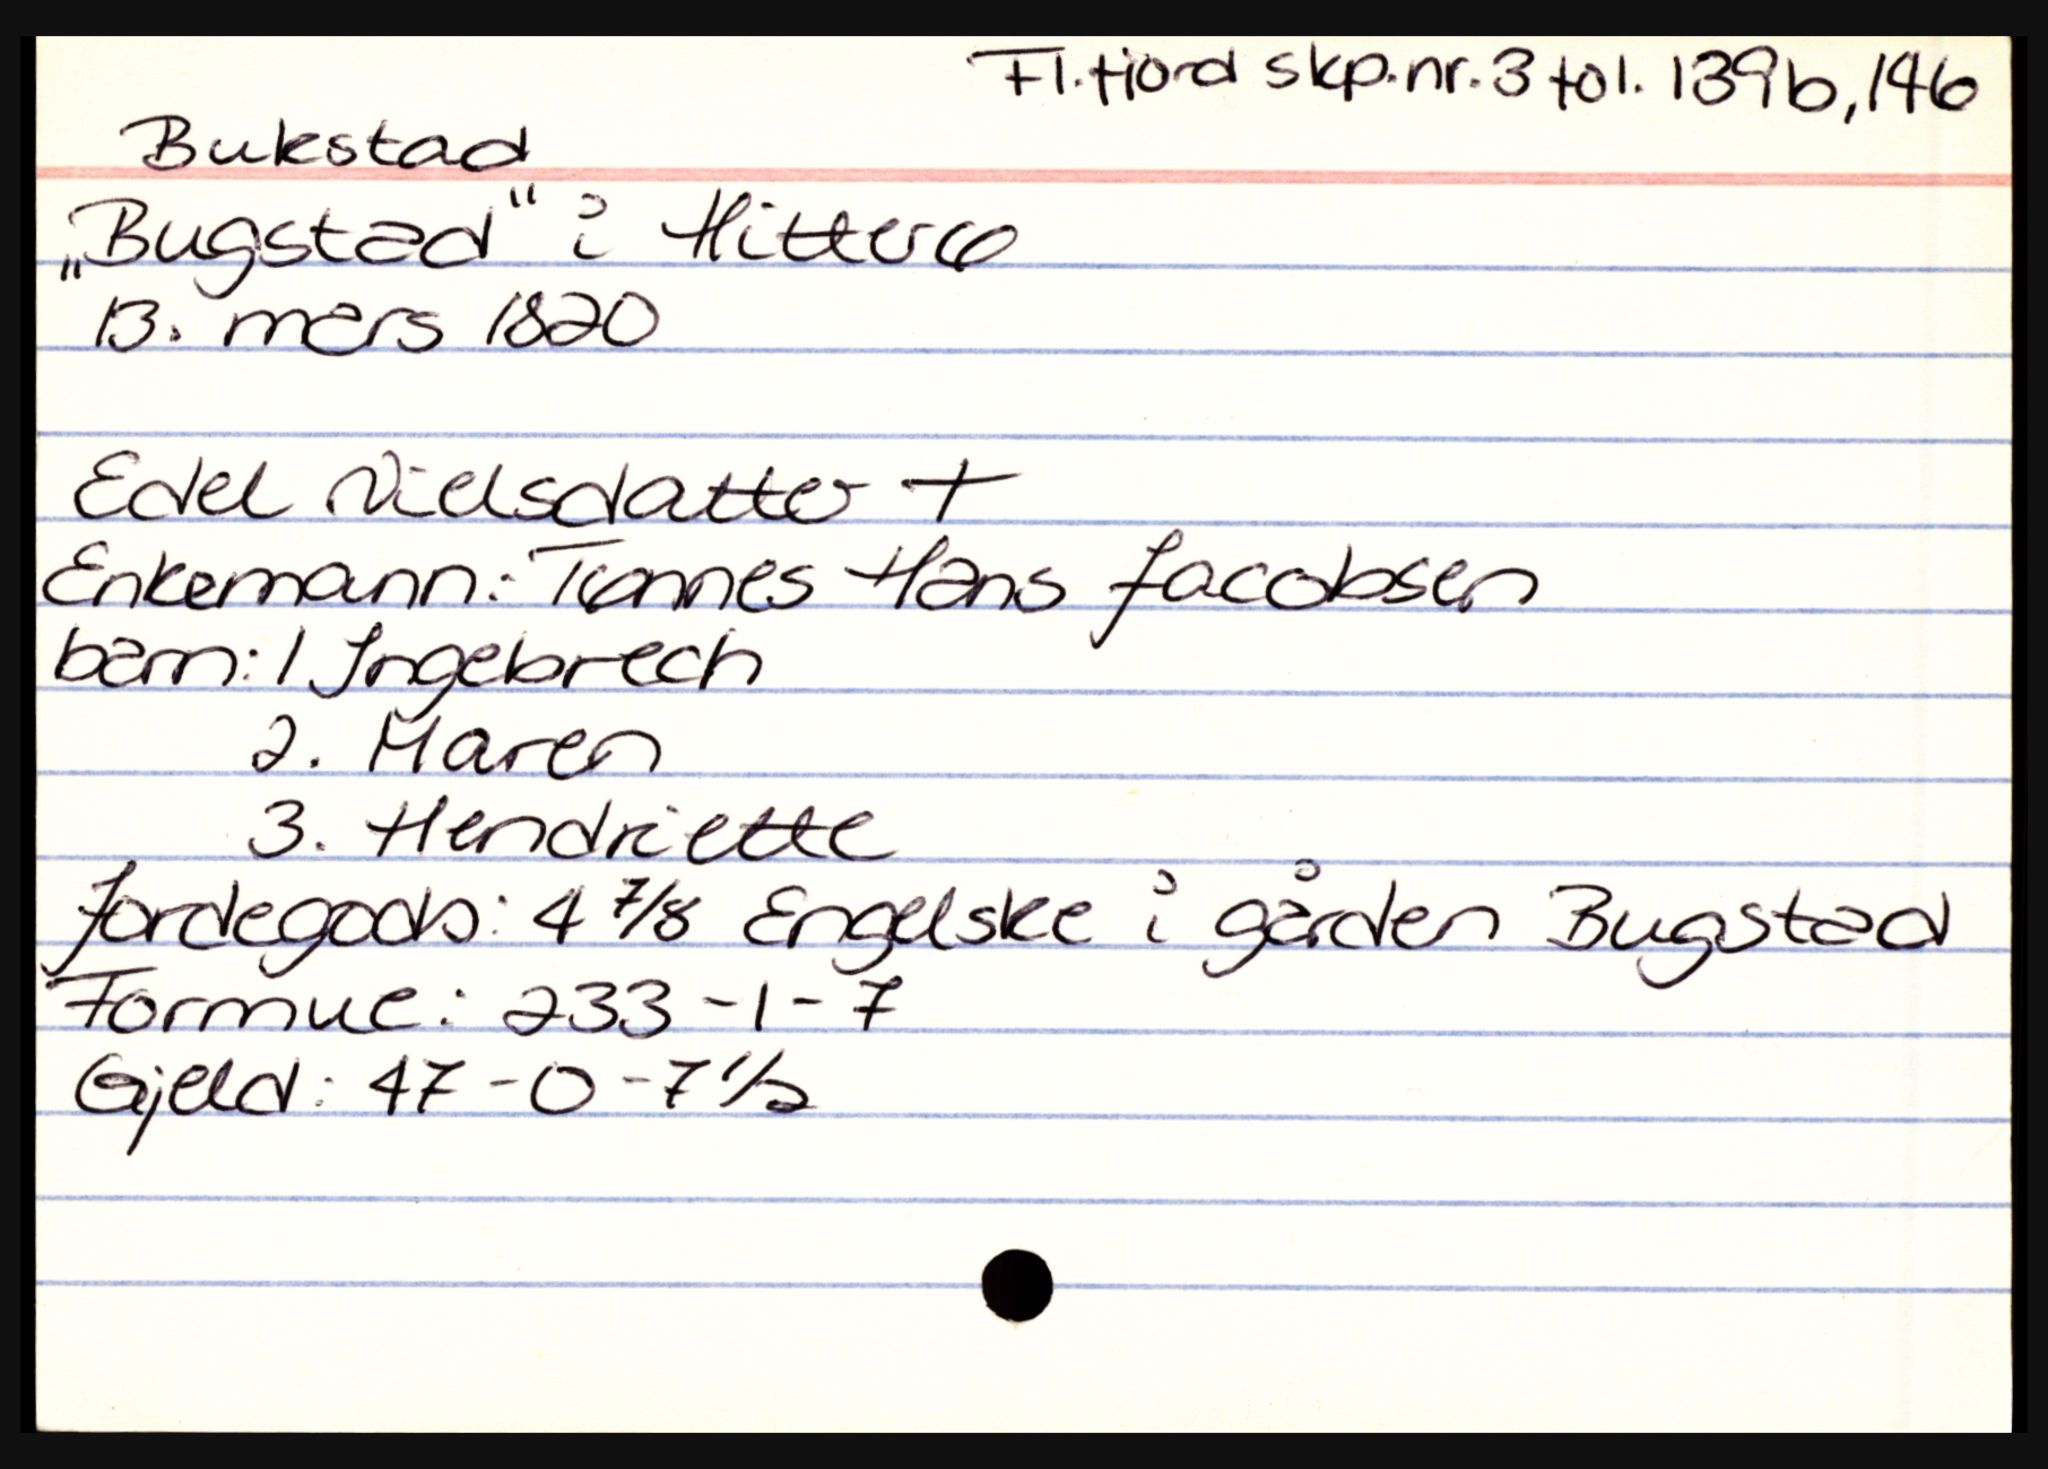 Fl.fjord skp.nr. 3 fol. 139b, 146
Bukstad
„Bugstad“ i Hitterø
13. mars 1820
Edel Nielsdatter +
Enkemann: Tønnes Hans Jacobsen
barn: 1 Ingebrech
2. Maren
3. Hendriette
Jordegods: 4 7/8 Engelske i gården Bugstad
Formue: 233 - 1 - 7
Gjeld: 47 - 0 - 7 1/2